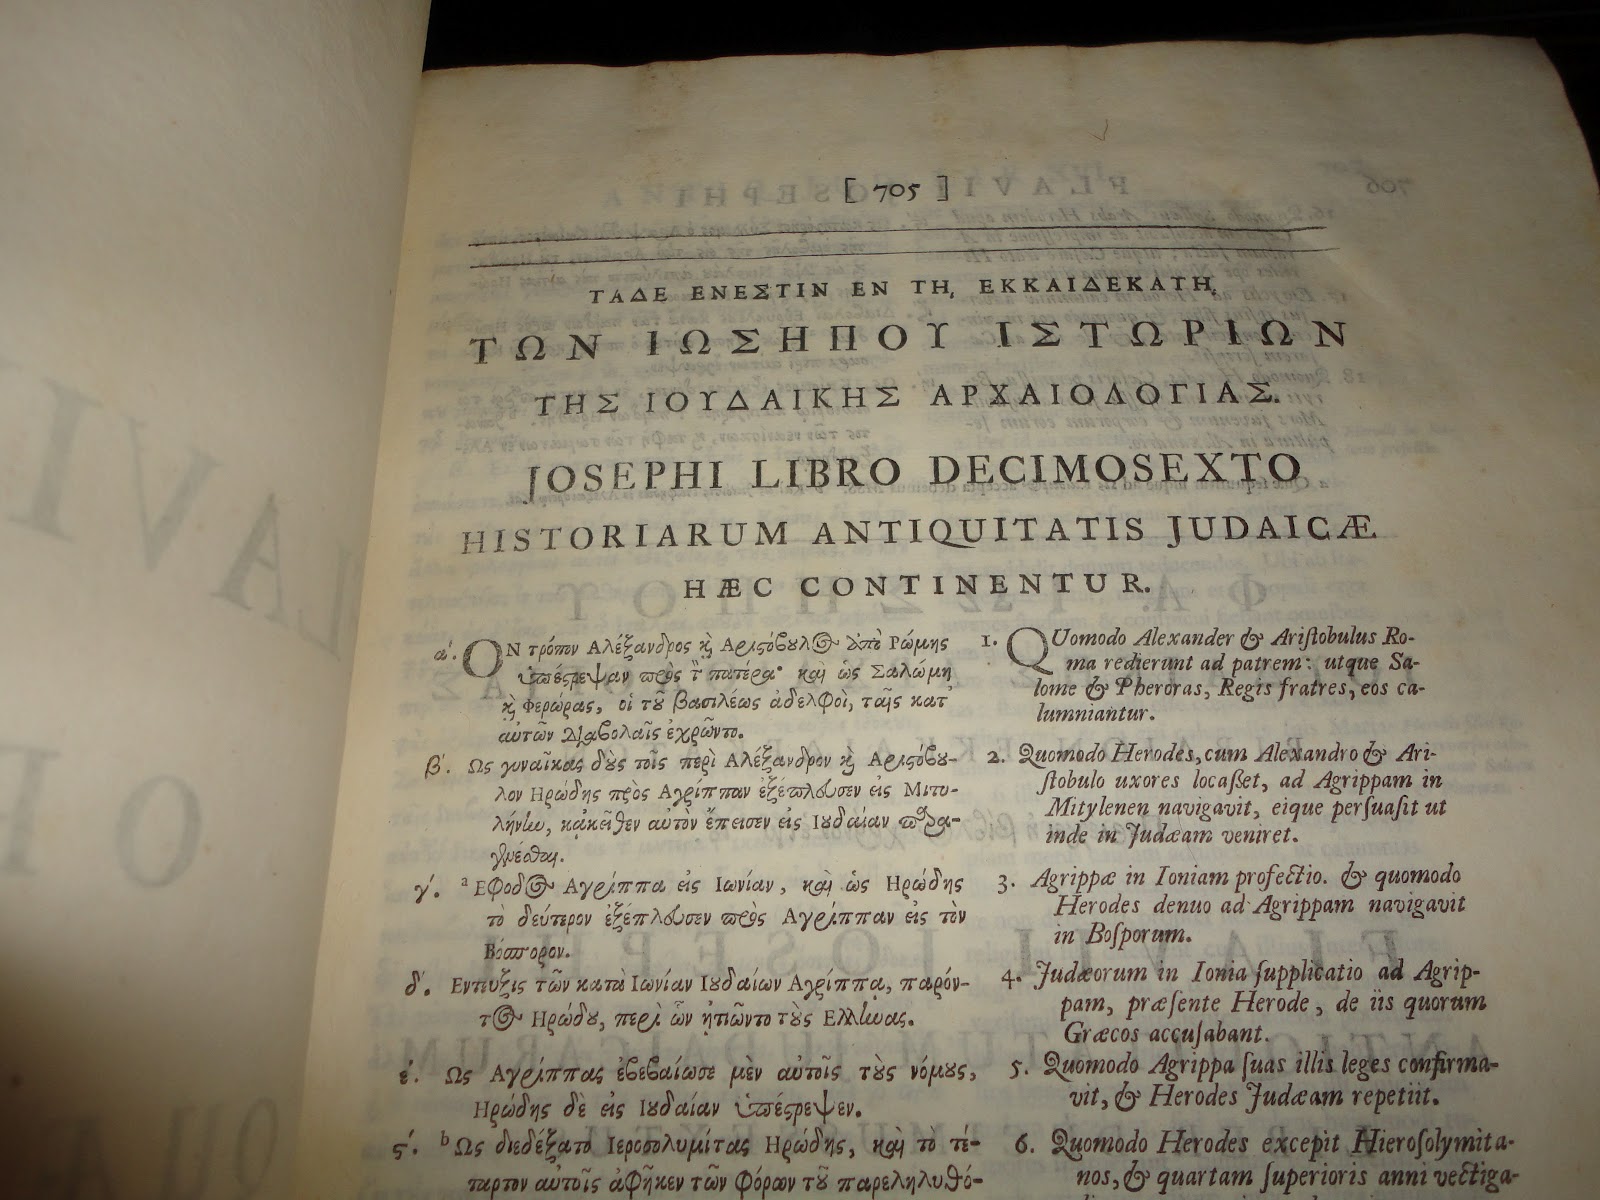 [ 705 ]
ΤΑΔΕ ΕΝΕΣΤΙΝ ΕΝ ΤΗ, ΕΚΚΑΙΔΕΚΑΤΗ,
ΤΩΝ ΙΩΣΗΠΟΥ ΙΣΤΩΡΙΩΝ
ΤΗΣ ΙΟΥΔΑΙΚΗΣ ΑΡΧΑΙΟΛΟΓΙΑΣ.
JOSEPHI LIBRO DECIMOSEXTO
HISTORIARUM ANTIQUITATIS JUDAICÆ
HÆC CONTINENTUR.
α΄. ΟΝ τρόπον Αλέξανδρος κ̀ Αριστόβουλος ἀπὸ Ρώμης
ὑπέστρεψαν πρὸς τ̀ πατέρα· καὶ ὡς Σαλώμη
κ̀ Φερώρας, οἱ τοῦ βασιλέως ἀδελφοὶ, ταῖς κατ᾽
αὐτῶν διαβολαῖς ἐχρῶντο.
β΄. Ως γυναῖκας δοὺς τοῖς περὶ Αλέξανδρον κ̀ Αριστόβου-
λον Ηρώδης πρὸς Αγρίππαν ἐξέπλευσεν εἰς Μιτυ-
λήνην, κἀκεῖθεν αὐτὸν ἔπεισεν εἰς Ιουδαίαν παρα-
γενέσθαι.
γ΄. ᵃ Εφοδος Αγρίππα εἰς Ιωνίαν, καὶ ὡς Ηρώδης
τὸ δεύτερον ἐξέπλευσεν πρὸς Αγρίππαν εἰς τὸν
Βόσπορον.
δ΄. Εντευξις τῶν κατὰ Ιωνίαν Ιουδαίων Αγρίππᾳ, παρόν-
τος Ηρώδου, περὶ ὧν ᾐτιῶντο τοὺς Ελληνας.
ε΄. Ως Αγρίππας ἐβεβαίωσε μὲν αὐτοῖς τοὺς νόμους,
Ηρώδης δὲ εἰς Ιουδαίαν ὑπέστρεψεν.
ς΄. ᵇ Ως διεδέξατο Ιεροσολυμίτας Ηρώδης, καὶ τὸ τέ-
ταρτον αὐτοῖς ἀφῆκεν τῶν φόρων τοῦ παρεληλυθό-
1. QUomodo Alexander & Ariſtobulus Ro-
ma redierunt ad patrem: utque Sa-
lome & Pheroras, Regis fratres, eos ca-
lumniantur.
2. Quomodo Herodes, cum Alexandro & Ari-
ſtobulo uxores locaſſet, ad Agrippam in
Mitylenen navigavit, eique perſuaſit ut
inde in Judæam veniret.
3. Agrippæ in Ioniam profectio. & quomodo
Herodes denuo ad Agrippam navigavit
in Boſporum.
4. Judæorum in Ionia ſupplicatio ad Agrip-
pam, præſente Herode, de iis quorum
Græcos accuſabant.
5. Quomodo Agrippa ſuas illis leges confirma-
vit, & Herodes Judæam repetiit.
6. Quomodo Herodes excepit Hieroſolymita-
nos, & quartam ſuperioris anni vectiga-